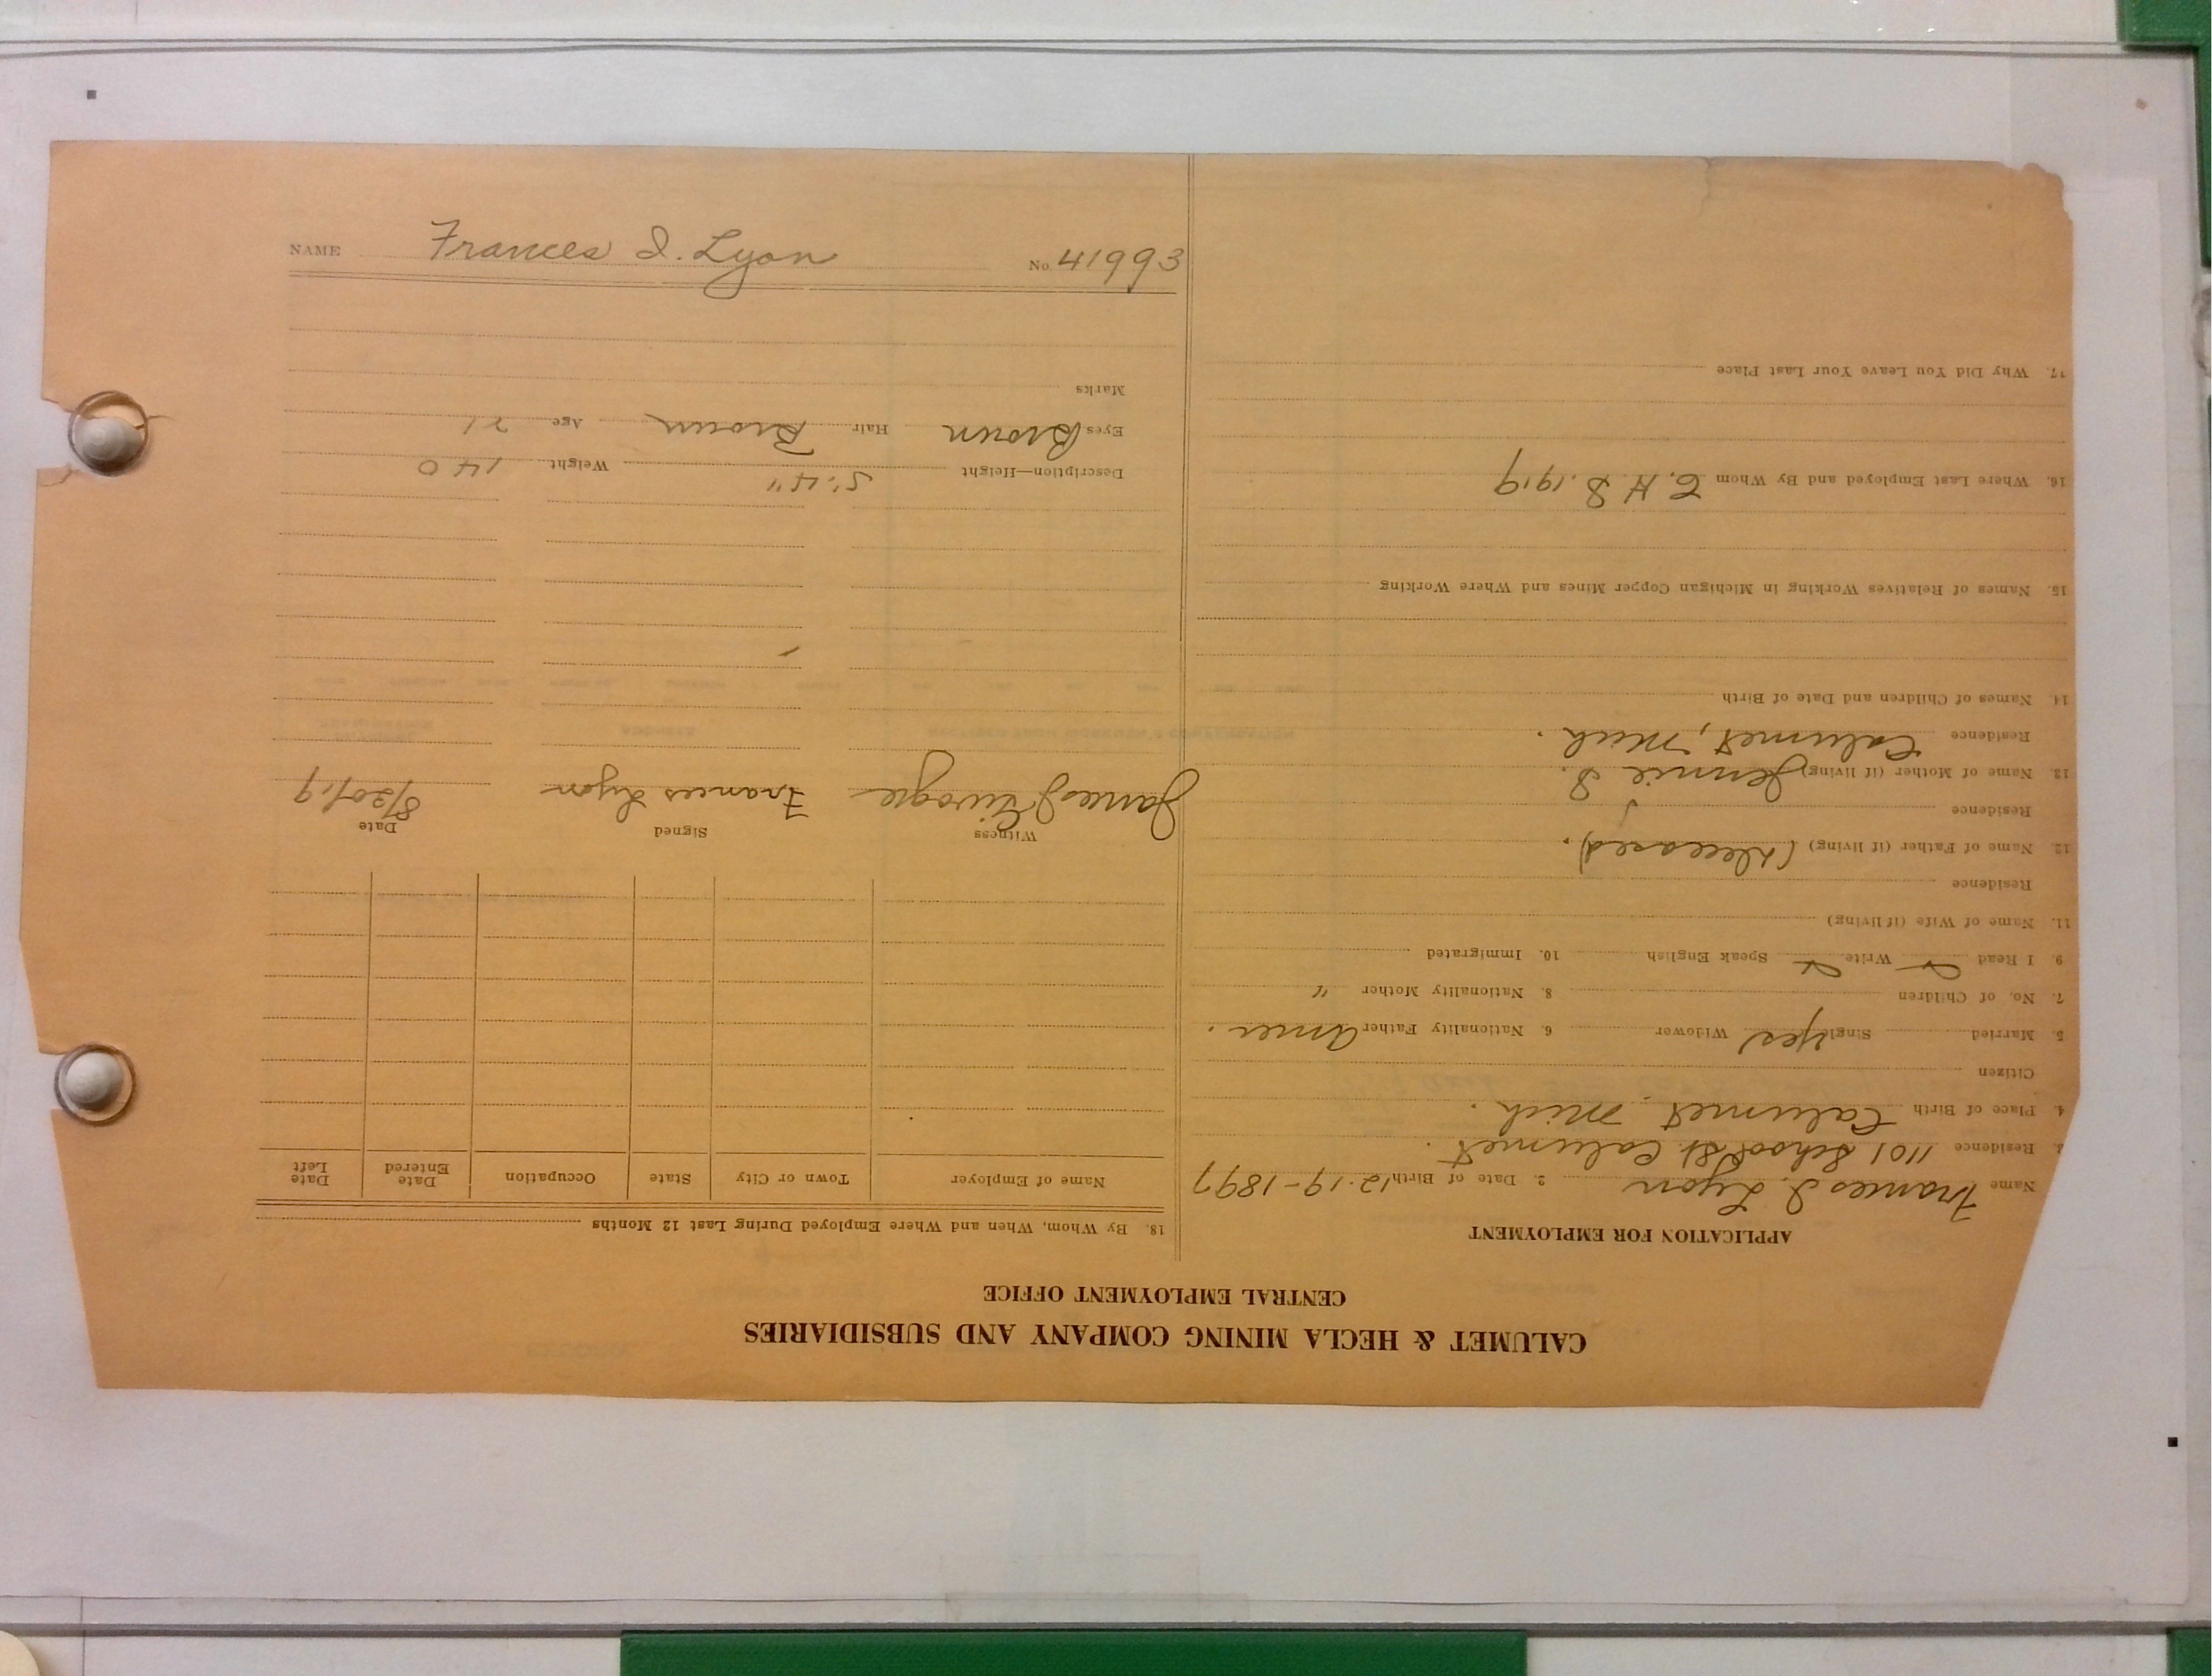 NAME Frances I. Lyon No. 41993
CALUMET & HECLA MINING COMPANY AND SUBSIDIARIES
CENTRAL EMPLOYMENT OFFICE
APPLICATION FOR EMPLOYMENT
Name Frances I. Lyon 2. Date of Birth 12-19-1897
3. Residence 1101 School St Calumet.
4. Place of Birth Calumet, Mich.
Citizen
5. Married Single Yes Widower 6. Nationality Father Amer.
7. No. of Children 8. Nationality Mother "
9. I Read Write Speak English 10. Immigrated
11. Name of Wife (if living)
Residence
12. Name of Father (if living) (Deceased).
Residence
13. Name of Mother (if living) Jennie S.
Residence Calumet, Mich.
14. Names of Children and Date of Birth
15. Names of Relatives Working in Michigan Copper Mines and Where Working
16. Where Last Employed and By Whom C. H. S. 1919
17. Why Did You Leave Your Last Place
18. By Whom, When and Where Employed During Last 12 Months
Name of Employer Town or City State Occupation Date Entered Date Left
Witness Signed Date
James Frances Lyon 8/20/19
Description—Height 5'-4" Weight 140
Eyes Brown Hair Brown Age 21
Marks